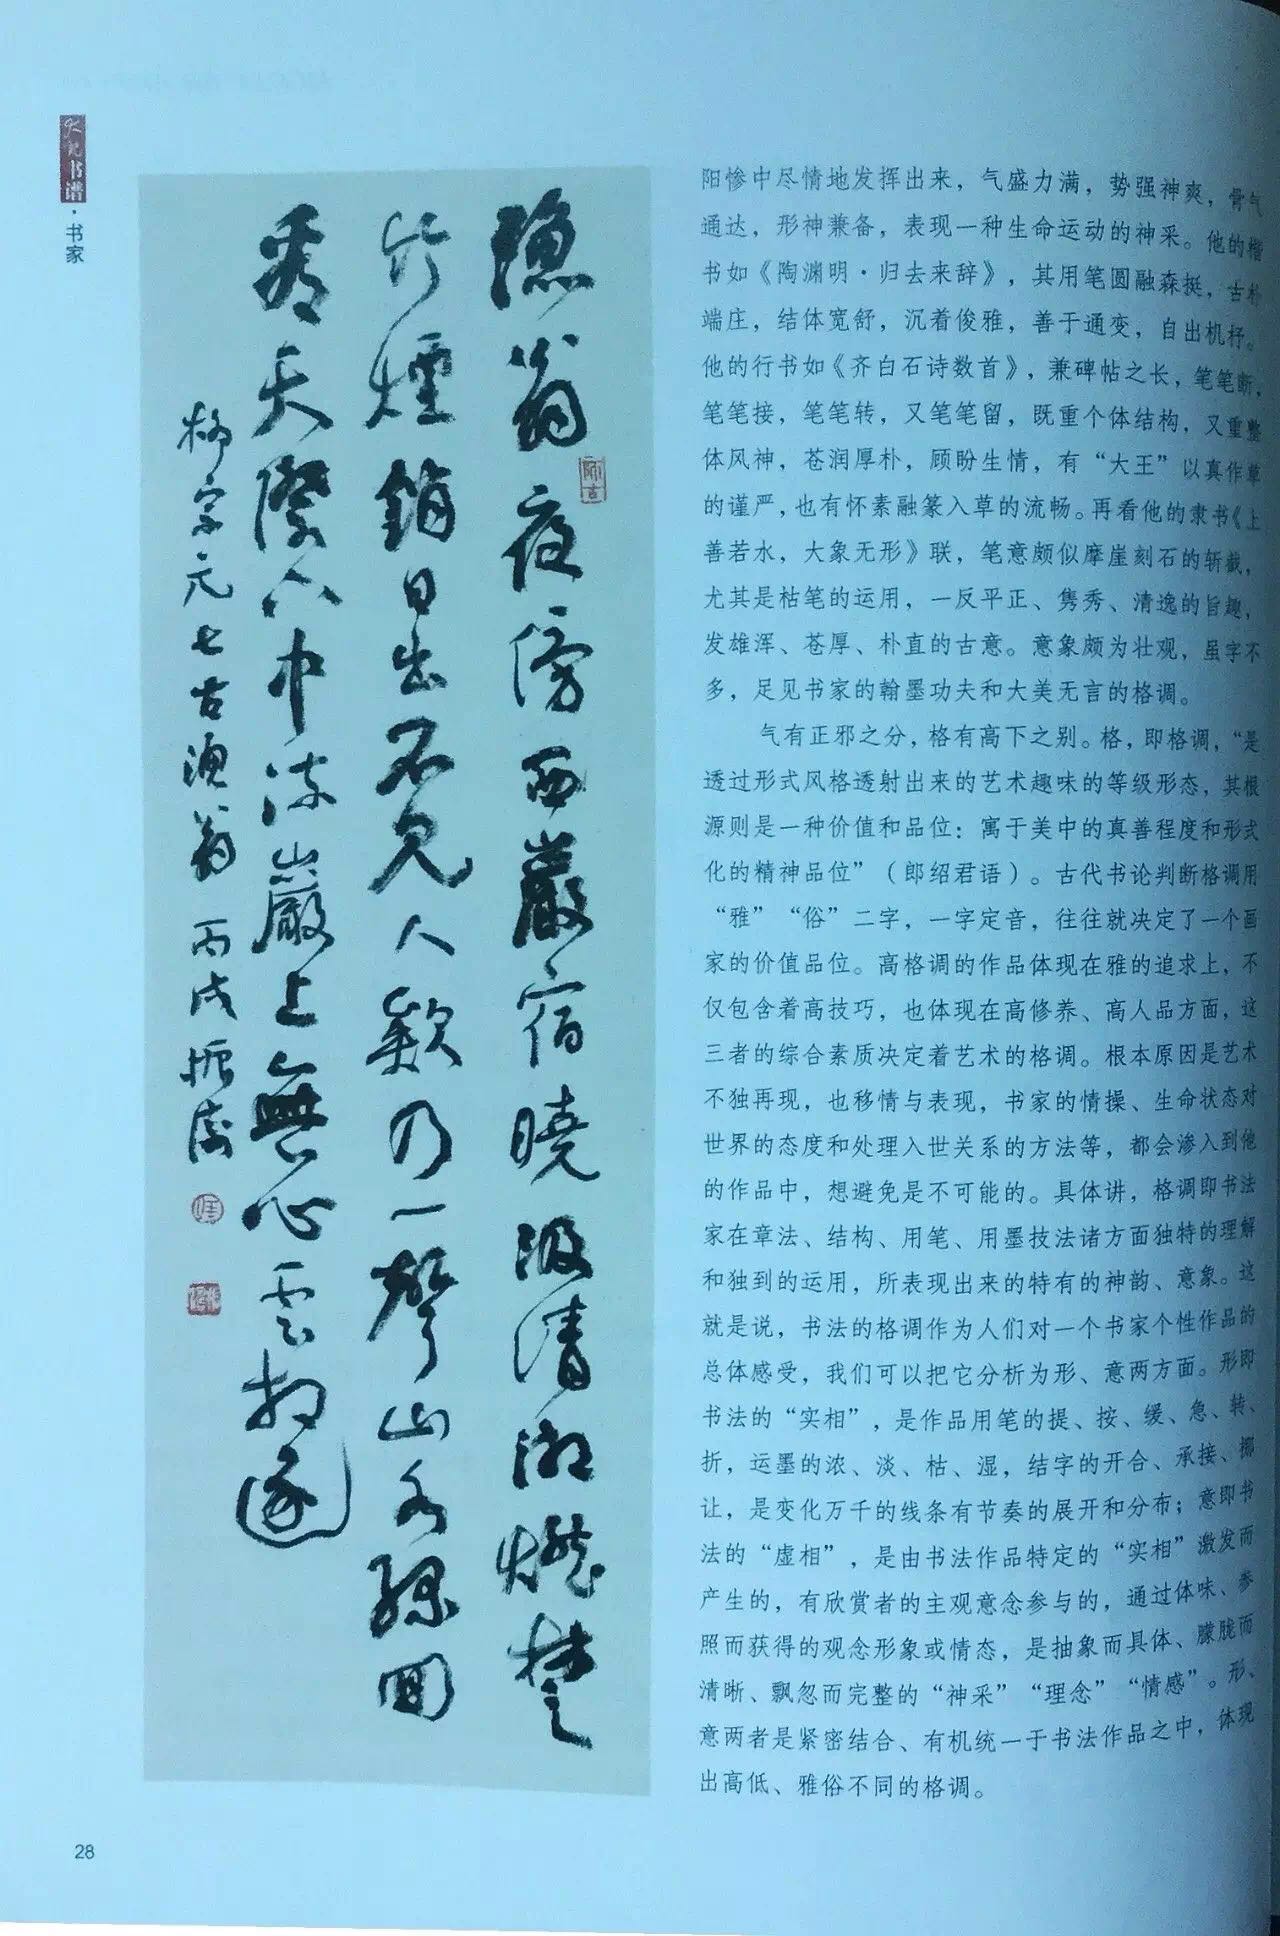 书谱·书家
漁翁夜傍西巖宿曉汲清湘燃楚
竹煙銷日出不見人欸乃一聲山水綠回
看天際下中流巖上無心雲相逐
柳宗元七古漁翁 丙戌
阳惨中尽情地发挥出来，气盛力满，势强神爽，骨气
通达，形神兼备，表现一种生命运动的神采。他的楷
书如《陶渊明·归去来辞》，其用笔圆融森挺，古朴
端庄，结体宽舒，沉着俊雅，善于通变，自出机杼。
他的行书如《齐白石诗数首》，兼碑帖之长，笔笔断，
笔笔接，笔笔转，又笔笔留，既重个体结构，又重整
体风神，苍润厚朴，顾盼生情，有“大王”以真作草
的谨严，也有怀素融篆入草的流畅。再看他的隶书《上
善若水，大象无形》联，笔意颇似摩崖刻石的斩截，
尤其是枯笔的运用，一反平正、隽秀、清逸的旨趣，
发雄浑、苍厚、朴直的古意。意象颇为壮观，虽字不
多，足见书家的翰墨功夫和大美无言的格调。
气有正邪之分，格有高下之别。格，即格调，“是
透过形式风格透射出来的艺术趣味的等级形态，其根
源则是一种价值和品位：寓于美中的真善程度和形式
化的精神品位”（郎绍君语）。古代书论判断格调用
“雅”“俗”二字，一字定音，往往就决定了一个画
家的价值品位。高格调的作品体现在雅的追求上，不
仅包含着高技巧，也体现在高修养、高人品方面，这
三者的综合素质决定着艺术的格调。根本原因是艺术
不独再现，也移情与表现，书家的情操、生命状态对
世界的态度和处理入世关系的方法等，都会渗入到他
的作品中，想避免是不可能的。具体讲，格调即书法
家在章法、结构、用笔、用墨技法诸方面独特的理解
和独到的运用，所表现出来的特有的神韵、意象。这
就是说，书法的格调作为人们对一个书家个性作品的
总体感受，我们可以把它分析为形、意两方面。形即
书法的“实相”，是作品用笔的提、按、缓、急、转、
折，运墨的浓、淡、枯、湿，结字的开合、承接、挪
让，是变化万千的线条有节奏的展开和分布；意即书
法的“虚相”，是由书法作品特定的“实相”激发而
产生的，有欣赏者的主观意念参与的，通过体味、参
照而获得的观念形象或情态，是抽象而具体、朦胧而
清晰、飘忽而完整的“神采”“理念”“情感”。形、
意两者是紧密结合、有机统一于书法作品之中，体现
出高低、雅俗不同的格调。
28